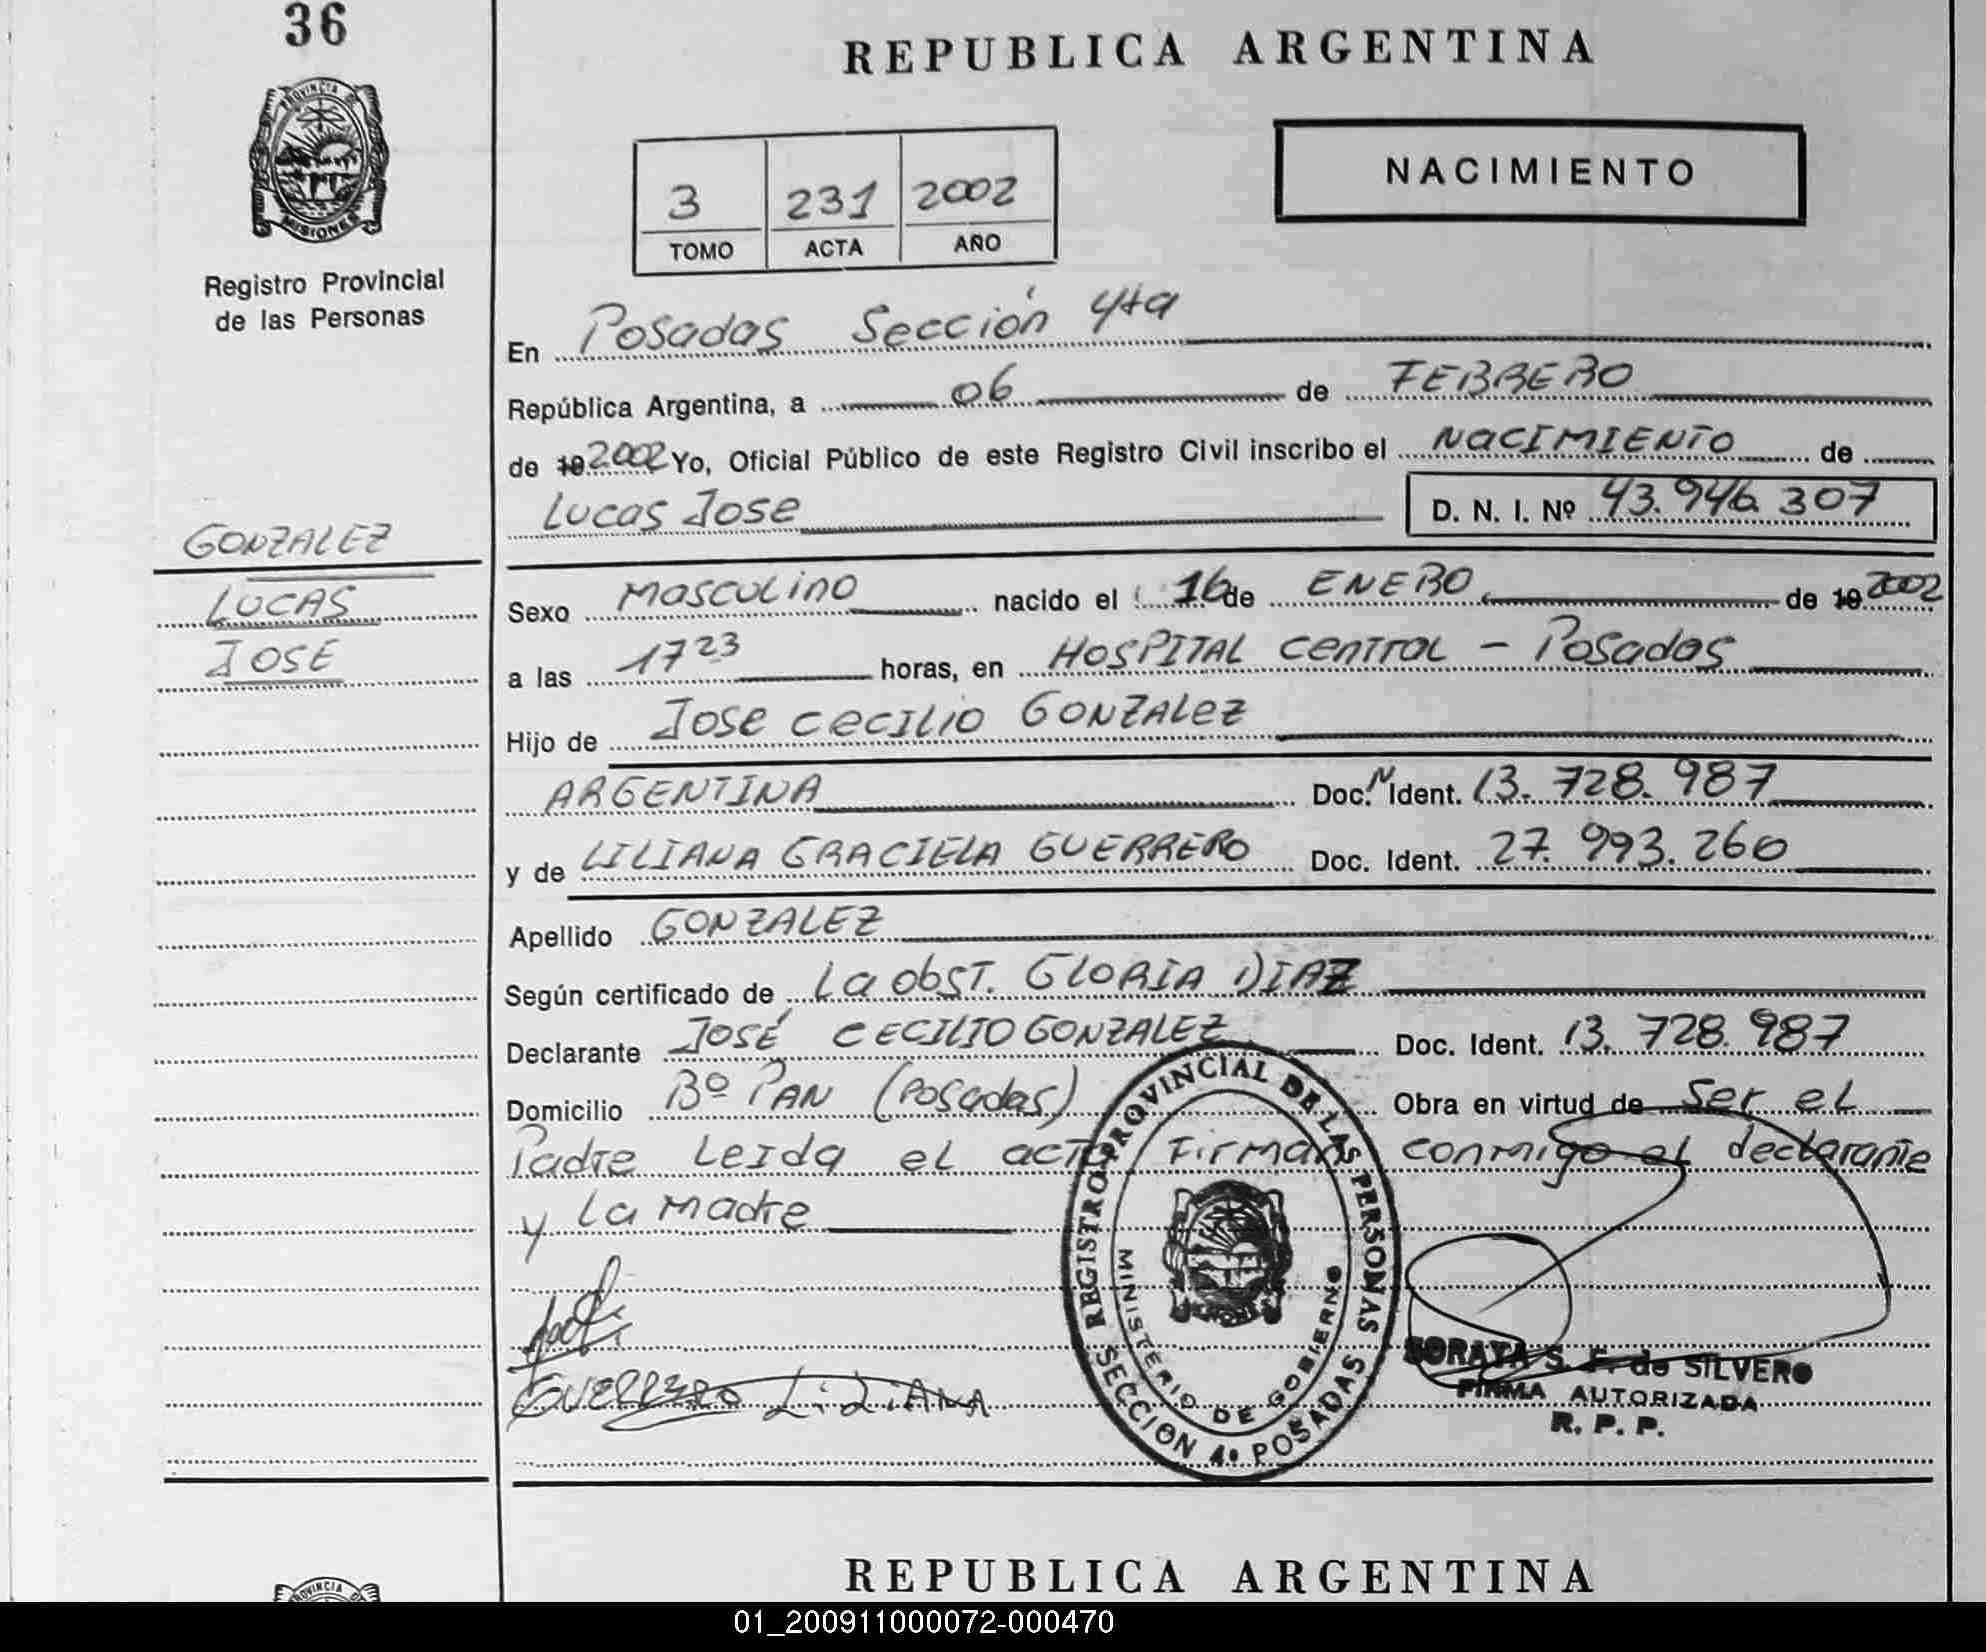 36
REPUBLICA ARGENTINA
PROVINCIA DE
MISIONES
Registro Provincial
de las Personas
3 231 2002
TOMO ACTA AÑO
NACIMIENTO
En Posadas Sección 4ta
República Argentina, a 06 de FEBRERO
de 19 2002 Yo, Oficial Público de este Registro Civil inscribo el NACIMIENTO de
Lucas Jose D. N. I. Nº 43.946.307
GONZALEZ
LUCAS
JOSE
Sexo MASCULINO nacido el 16 de ENERO de 19 2002
a las 17 23 horas, en HOSPITAL CENTRAL - Posadas
Hijo de Jose Cecilio GONZALEZ
ARGENTINA Doc. N Ident. 13.728.987
y de LILIANA GRACIELA GUERRERO Doc. Ident. 27.993.260
Apellido GONZALEZ
Según certificado de La obst. GLORIA DIAZ
Declarante JOSÉ CECILIO GONZALEZ Doc. Ident. 13.728.987
Domicilio Bº PAN (Posadas) Obra en virtud de ser el
Padre Leida el acta Firman conmigo el declarante
y la madre
GUERRERO LiLiANA
REGISTRO PROVINCIAL DE LAS PERSONAS
MINISTERIO DE GOBIERNO
SECCION 4ª POSADAS
SORAYA S. F. de SILVERO
FIRMA AUTORIZADA
R. P. P.
REPUBLICA ARGENTINA
PROVINCIA DE
01_200911000072-000470